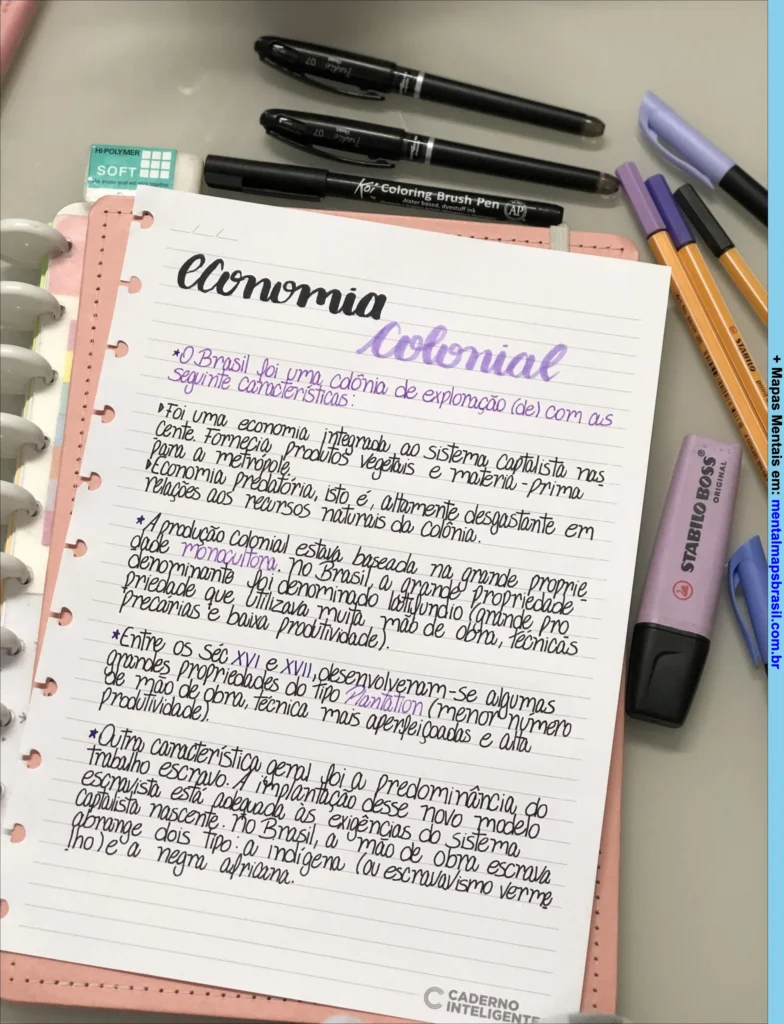 HI-POLYMER
SOFT
07
07
Koi Coloring Brush Pen
water based, dyestuff ink
AP
economia
Colonial
*O Brasil foi uma colônia de exploração (de) com as
seguinte características:
Foi uma economia integrada ao sistema captalista nas
cente. Fornecia produtos vegetais e matéria-prima
para a metrópole.
Economia predatória, isto é, altamente desgastante em
relações aos recursos naturais da colônia.
*A produção colonial estava baseada na grande proprie
dade monocultora. No Brasil, a grande propriedade
denominante foi denominado latifundio (grande pro
priedade que utilizava muita mão de obra, técnicas
precárias e baixa produtividade).
*Entre os séc XVI e XVII, desenvolveram-se algumas
grandes propriedades do tipo Plantation (menor número
de mão de obra, técnica mais aperfeiçoadas e alta
produtividade).
*Outra característica geral foi a predominância do
trabalho escravo. A implantação desse novo modelo
escravista está adequada às exigências do sistema
captalista nascente. No Brasil, a mão de obra escrava
abrange dois tipo: a indígena (ou escravavismo verme
lho) e a negra africana.
CADERNO
INTELIGENTE
STABILO
STABILO BOSS
ORIGINAL
+ Mapas Mentais em: mentalmapsbrasil.com.br